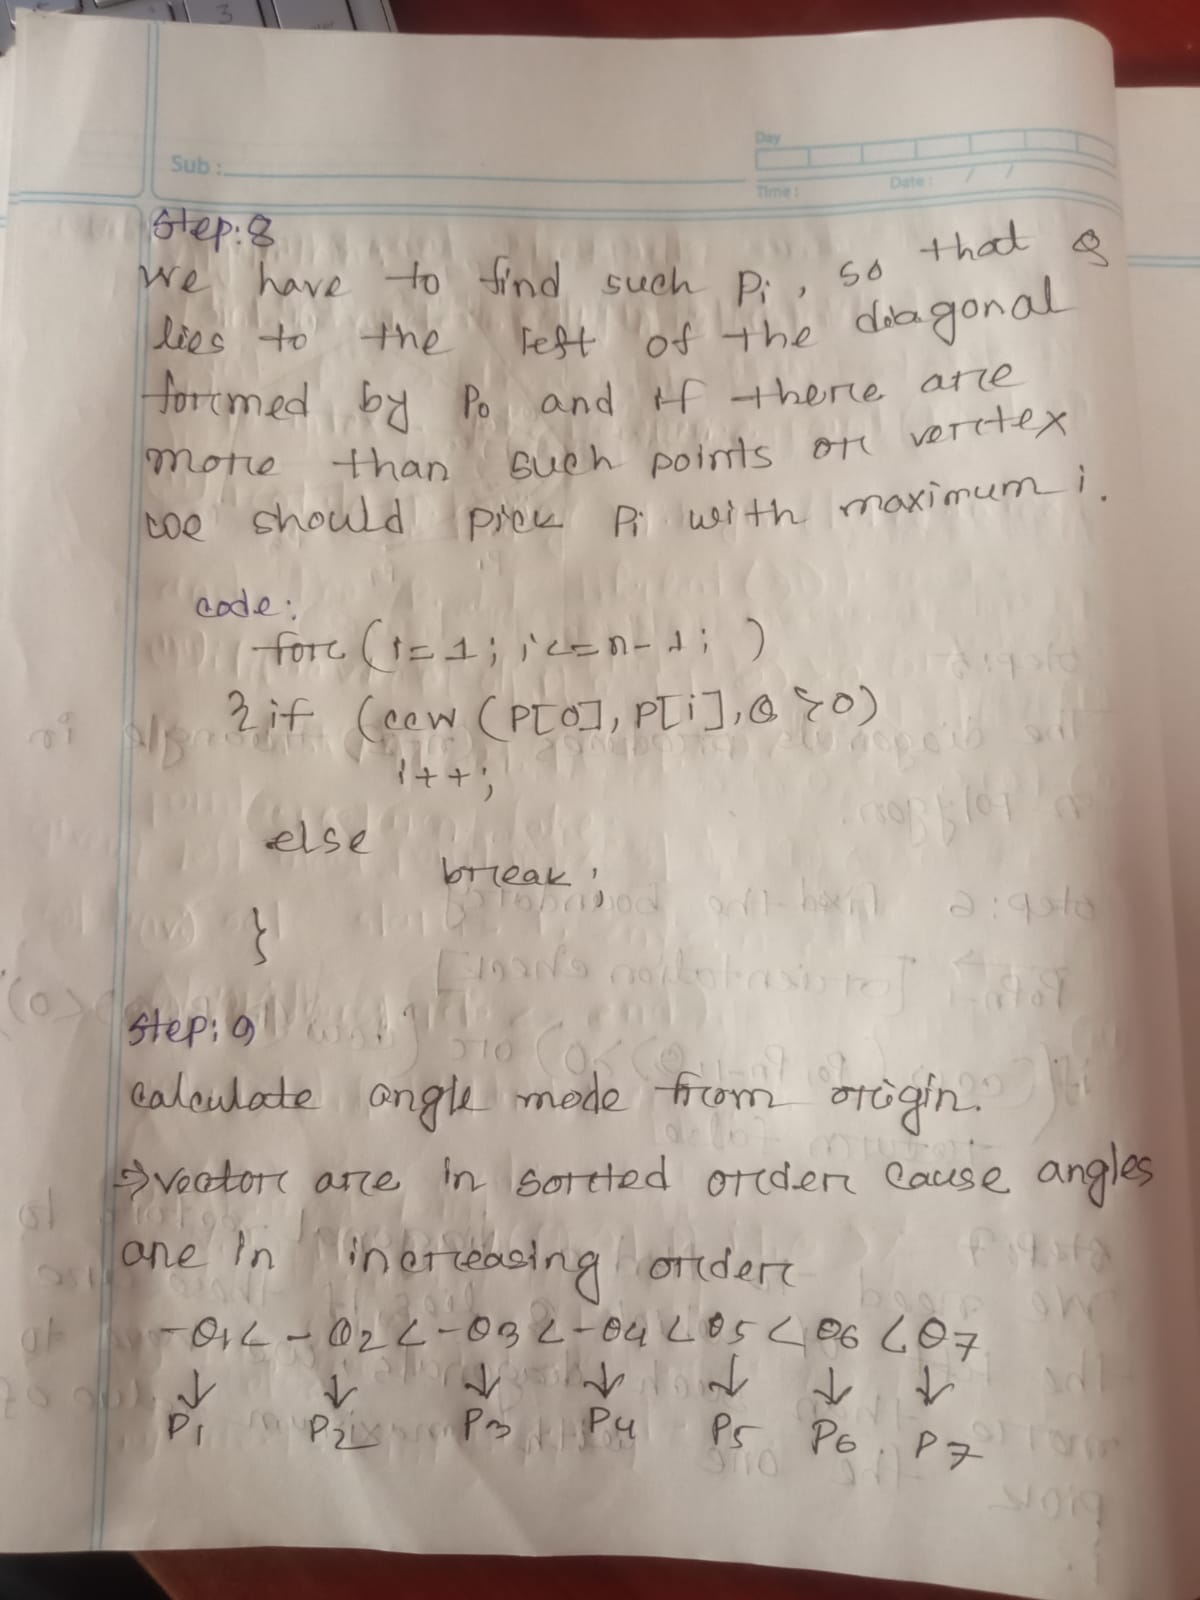 Sub :
Day
Time :
Date : / /
Step: 8
we have to find such Pi, so that Q
lies to the left of the diagonal
formed by P0 and if there are
more than such points or vertex
we should pick Pi with maximum i.
code:
for (i=1; i<=n-1; )
{ if (ccw (P[0], P[i], Q >0)
i++;
else
break;
}
Step: 9
calculate angle mode from origin.
⇒ vector are in sorted order cause angles
are in increasing order
-θ1< -θ2< -θ3< -θ4 <θ5 <θ6 <θ7
↓ ↓ ↓ ↓ ↓ ↓ ↓
P1 P2 P3 P4 P5 P6 P7